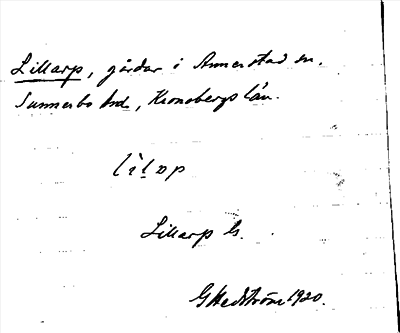 Lillarp, gårdar i Annerstad sn.
Sunnerbo hd, Kronobergs län.
Lillarp G.
G Hedström 1920.